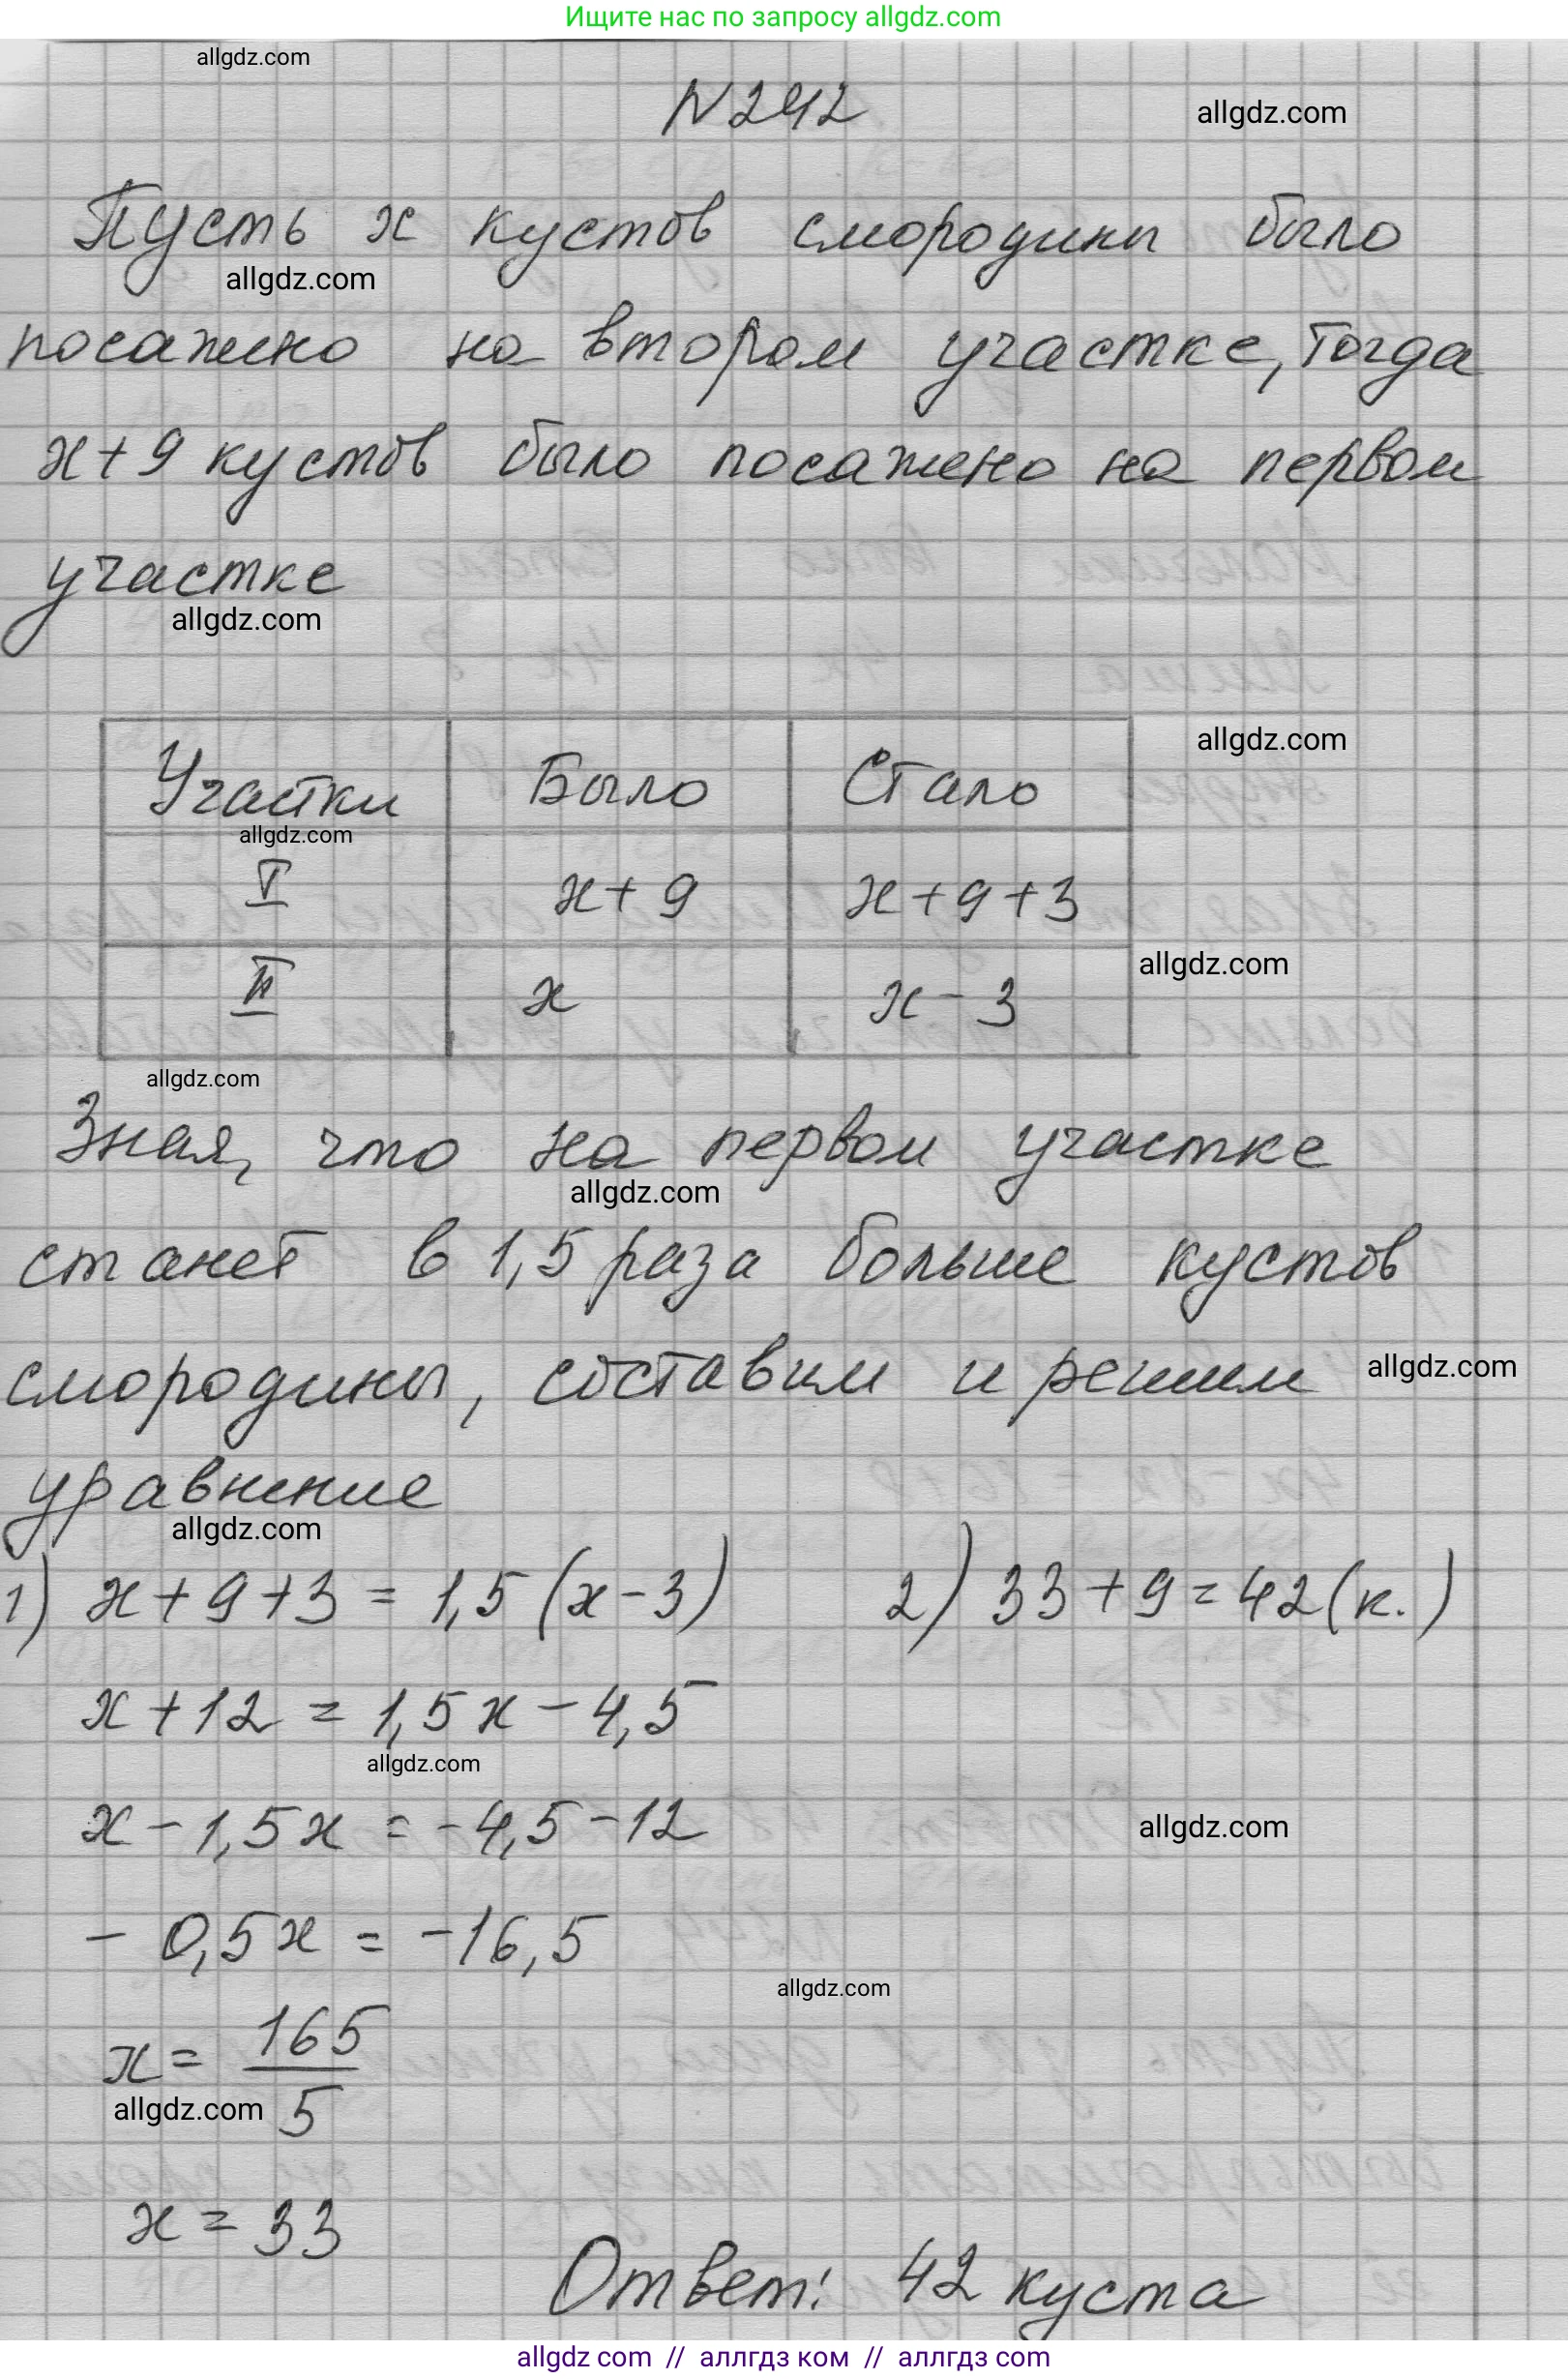 Ищите нас по запросу allgdz.com
allgdz.com
N 242
allgdz.com
Пусть x кустов смородины было
allgdz.com
посажено на втором участке, тогда
x + 9 кустов было посажено на первом
участке
allgdz.com
allgdz.com
Участки Было Стало
allgdz.com
I x + 9 x + 9 + 3
allgdz.com
II x x - 3
allgdz.com
Зная, что на первом участке
allgdz.com
станет в 1,5 раза больше кустов
смородины, составим и решим
allgdz.com
уравнение
allgdz.com
1) x + 9 + 3 = 1,5 (x - 3) 2) 33 + 9 = 42 (к.)
x + 12 = 1,5 x - 4,5
allgdz.com
x - 1,5 x = -4,5 - 12
allgdz.com
- 0,5 x = -16,5
allgdz.com
x = 165/5
allgdz.com
x = 33
Ответ: 42 куста
allgdz com // аллгдз ком // аллгдз com